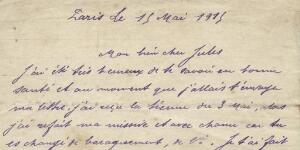 Paris le 15 Mai 1915
Mon bien cher Jules
J'ai été très heureux de te savoir en bonne
santé et au moment que j'allais t'envoyé
ma lettre j'ai reçu la tienne du 3 Mai, donc
j'ai refait ma missive et avec chance car tu
es changé de baraquement, de . Je t'ai fait